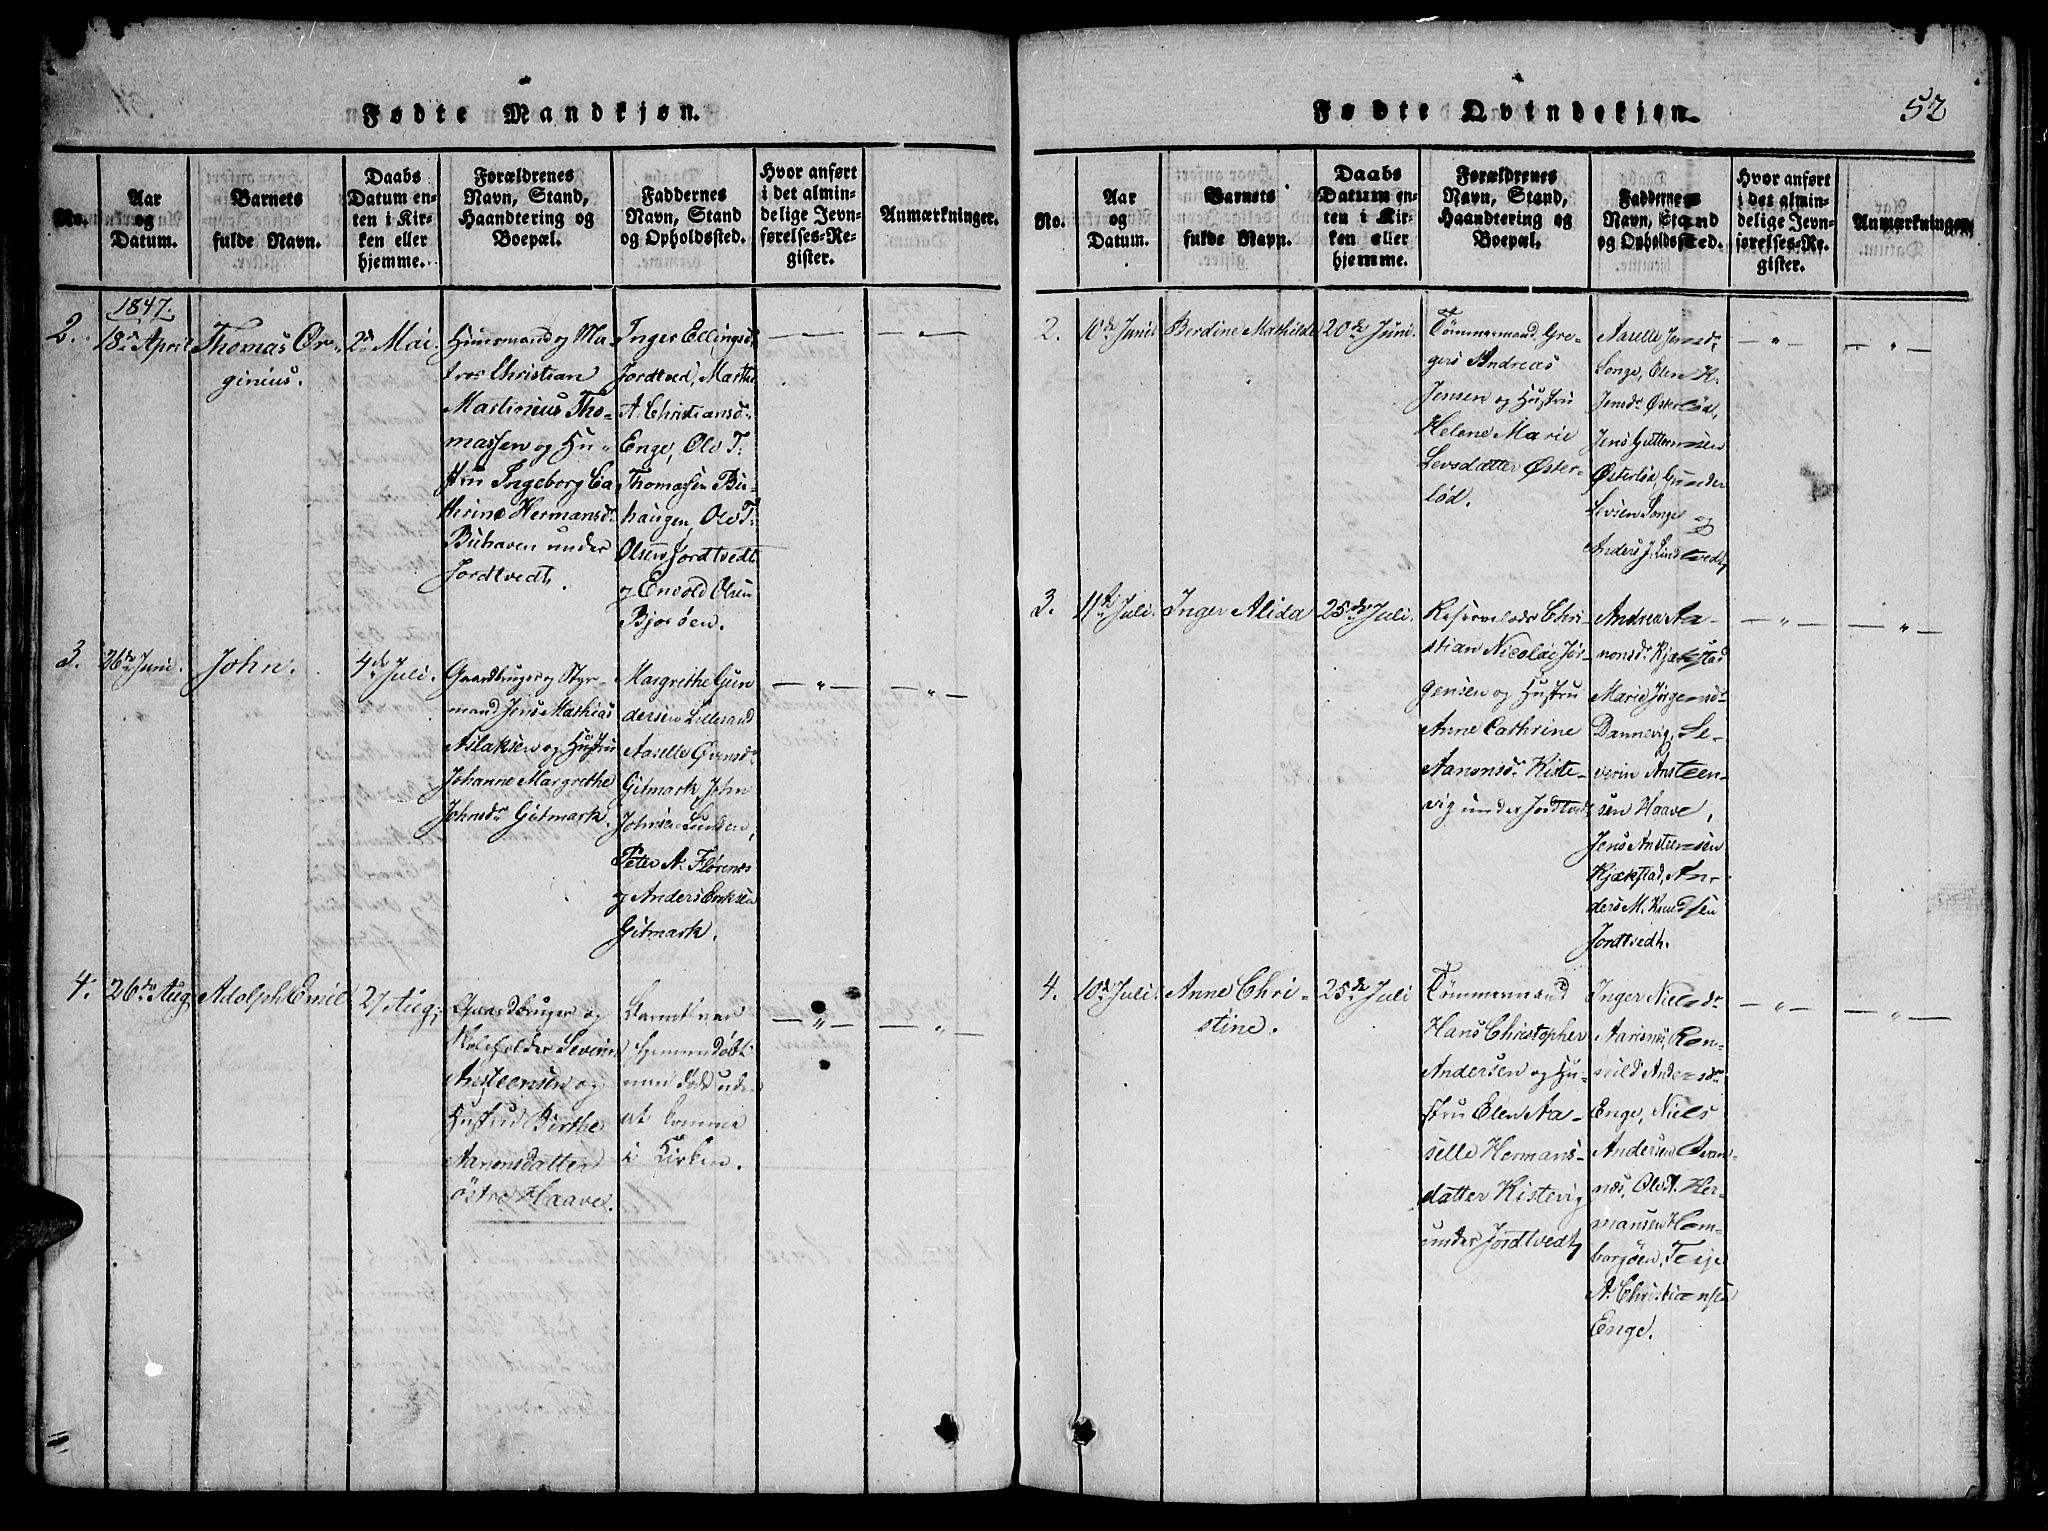 Fødte Mandkjøn.
No.
Aar
og
Datum.
Barnets
fulde Navn.
Daabs
Datum en-
ten i Kir-
ken eller
hjemme.
Forældrenes
Navn, Stand,
Haandtering og
Boepæl.
Faddernes
Navn, Stand
og Opholdssted.
Hvor anført
i det almin-
delige Jevn-
førelses-Re-
gister.
Anmærkninger.
1847.
2.
18de April
Thomas Or-
ginius.
2den Mai.
Huusmand og Ma-
tros Christian
Martinius Tho-
massen og Hu-
stru Ingeborg Ca-
thrine Hermansdr
Buhaven under
Jordtvedt.
Inger Ellingsd.
Jordtved, Marthe
A. Christiansdr
Enge, Ole T.
Thomassen Bu-
haugen, Ole T.
Olsen Jordtvedt
og Envold Olsen
Bjorøen.
— " —
— " —
3.
26de Juni.
John.
4de Juli.
Gaardbruger og Styr-
mand Jens Mathias
Aslaksen og Hustru
Johanne Margrethe
Johnsdr Gitmark.
Margrethe Gun
dersen Lillesand
Aaselle Ovensdr
Gitmark, John
Johnsen
Peter A. Florenes
og Anders Eriksen
Gitmark.
— " —
— " —
4.
26de Aug.
Adolph Emil
27 Aug.
Gaardbruger og
Severin
Ansteensen og
Hustru Birthe
Aanonsdatter
østre Haave.
Barnet var
hjemmedøbt
men døde uden
at komme
i Kirken.
— " —
— " —
Fødte Qvindekjøn.
52
No.
Aar
og
Datum.
Barnets
fulde Navn.
Daabs
Datum en-
ten i Kir-
ken eller
hjemme.
Forældrenes
Navn, Stand,
Haandtering og
Boepæl.
Faddernes
Navn, Stand
og Opholdssted.
Hvor anført
i det almin-
delige Jevn-
førelses-Re-
gister.
Anmærkninger.
2.
10de Juni
Berdine Mathilde
20de Juni.
Tømmermand Gre-
gers Andreas
Jensen og Hustru
Helene Marie
Levsdatter Øster-
lød.
Aaselle Jensdr
Songe, Elen K.
Jensdr Østerlød,
Jens Guttormsen
Østerlød, Gunder
Levsen Songe og
Anders J. Lindtvedt
— " —
— " —
3.
11te Juli.
Inger Alida
25de Juli.
Reservelods Chri-
stian Nicolai Jør-
gensen og Hustru
Anne Cathrine
Aanonsdr Kiste-
vig under Jordtvedt
Andrea Aa-
nonsdr Kjækstad
Marie Jørgensdr
Dannevig, Se-
verin Ansteen-
sen Haave,
Jens Ansteensen
Kjækstad, An-
ders M. Knudsen
Jordtvedt.
— " —
— " —
4.
10de Juli.
Anne Chri-
stine.
25de Juli
Tømmermand
Hans Christopher
Andersen og Hu-
stru Elen Aa-
selle Hermans-
datter Kistevig
under Jordtvedt
Inger Nielsdr
Aarisnes, Ron-
neild Andersdr
Enge, Niels
Andersen
nes, Ole A. Her-
mansen Hom-
borgøen, Terje
A. Christiansen
Enge.
— " —
— " —